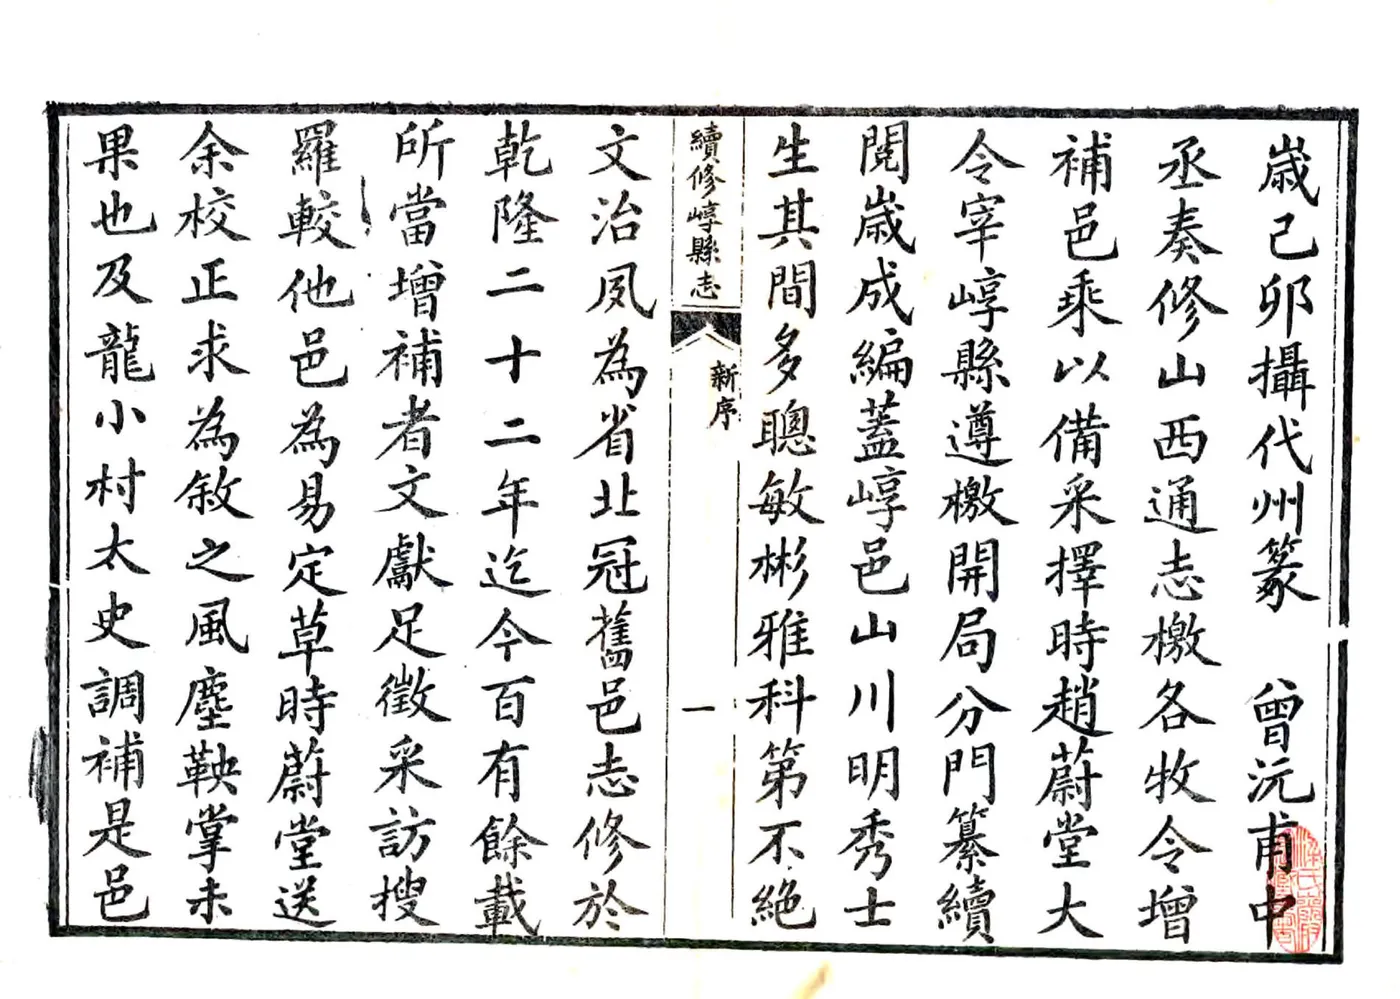 歲己卯攝代州篆　曾沅甫中
丞奏修山西通志檄各牧令增
補邑乘以備采擇時趙蔚堂大
令宰崞縣遵檄開局分門纂續
閱歲成編蓋崞邑山川明秀士
生其間多聰敏彬雅科第不絕
續修崞縣志
新序
一
文治夙為省北冠舊邑志修於
乾隆二十二年迄今百有餘載
所當增補者文獻足徵采訪搜
羅較他邑為易定草時蔚堂送
余校正求為敘之風塵鞅掌未
果也及龍小村太史調補是邑